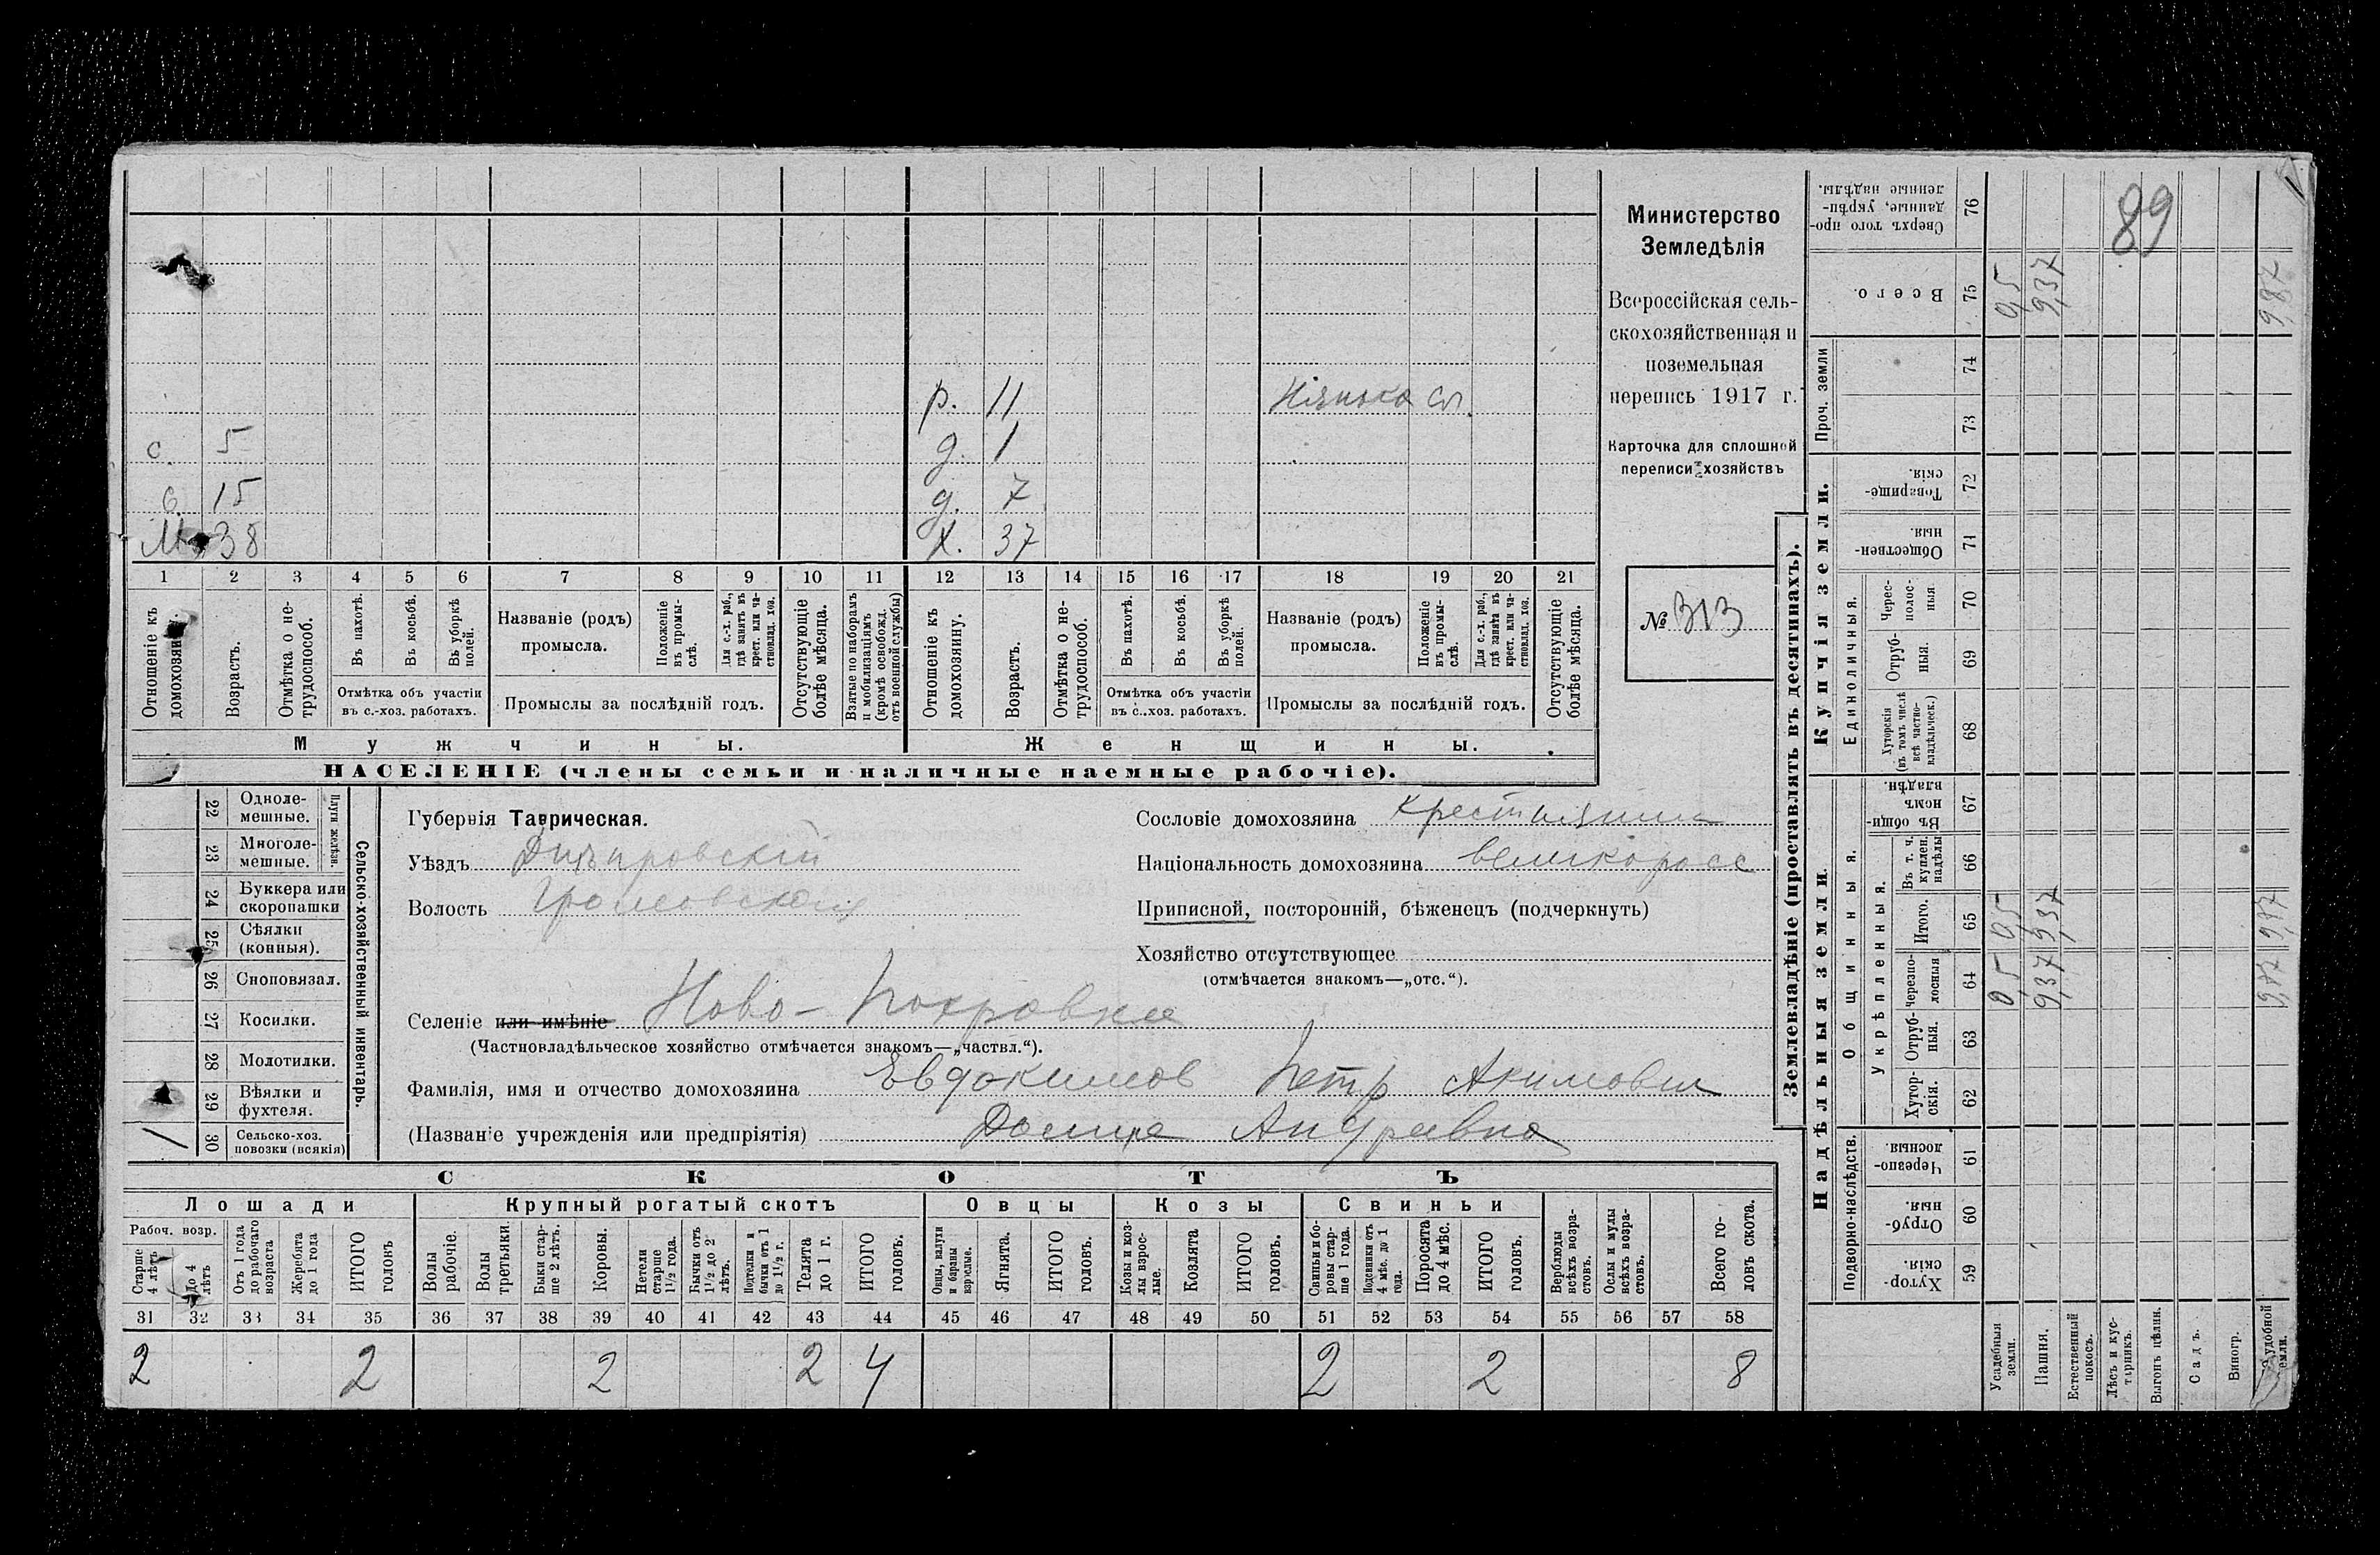 Министерство
Земледѣлія
Всероссійская сель-
скохозяйственная и
поземельная
перепись 1917 г.
Карточка для сплошной
переписи хозяйствъ
№ 313
89
р. 11 Нянька
с. 5 д. 1
с. 15 д. 7
М. 38 Х. 37
1 2 3 4 5 6 7 8 9 10 11 12 13 14 15 16 17 18 19 20 21
Отношеніе къ домохозяину.
Возрастъ.
Отмѣтка о не-трудоспособ.
Въ пахотѣ.
Въ косьбѣ.
Въ уборкѣ полей.
Отмѣтка объ участіи
въ с.-хоз. работахъ.
Названіе (родъ)
промысла.
Положеніе въ промы-слѣ.
Для с.-х. раб., гдѣ занятъ въ крест. или ча-стновлад. хоз.
Промыслы за послѣдній годъ.
Отсутствующіе болѣе мѣсяца.
Взятые по наборамъ и мобилизаціямъ (кромѣ освобожд. отъ военной службы)
Отношеніе къ домохозяину.
Возрастъ.
Отмѣтка о не-трудоспособ.
Въ пахотѣ.
Въ косьбѣ.
Въ уборкѣ полей.
Отмѣтка объ участіи
въ с.-хоз. работахъ.
Названіе (родъ)
промысла.
Положеніе въ промы-слѣ.
Для с.-х. раб., гдѣ заняты въ крест. или ча-стновлад. хоз.
Промыслы за послѣдній годъ.
Отсутствующіе болѣе мѣсяца.
Мужчины. Женщины.
НАСЕЛЕНІЕ (члены семьи и наличные наемные рабочіе).
Сельско-хозяйственный инвентарь.
Плуги желѣзн.
22 Одноле-мешные.
23 Многоле-мешные.
24 Буккера или скоропашки
25 Сѣялки (конныя).
26 Сноповязал.
27 Косилки.
28 Молотилки.
29 Вѣялки и фухтеля.
30 Сельско-хоз. повозки (всякія)
1
Губернія Таврическая.
Уѣздъ Днѣпровскій
Волость Громовская
Селеніе или имѣніе Ново-Покровка
(Частновладѣльческое хозяйство отмѣчается знакомъ—„частвл.“).
Фамилія, имя и отчество домохозяина Евдокимов Петр Акимович
(Названіе учрежденія или предпріятія) Андревна
Сословіе домохозяина крестьянин
Національность домохозяина великоросс
Приписной, посторонній, бѣженецъ (подчеркнуть)
Хозяйство отсутствующее
(отмѣчается знакомъ—„отс.“).
СКОТЪ
Лошади Крупный рогатый скотъ Овцы Козы Свиньи
Рабоч. возр.
Старше 4 лѣтъ
До 4 лѣтъ
Отъ 1 года до рабочаго возраста
Жеребята до 1 года
ИТОГО головъ
Волы рабочіе.
Волы третьяки.
Быки стар-ше 2 лѣтъ.
Коровы.
Нетели старше 1½ года.
Бычки отъ 1½ до 2 лѣтъ.
бычки отъ 1 до 1½ г.
Телята до 1 г.
ИТОГО головъ.
Овцы, валухи и бараны взрослые.
Ягнята.
ИТОГО головъ.
Козы и коз-лы взрос-лые.
Козлята
ИТОГО головъ.
Свиньи и бо-ровы стар-ше 1 года.
Подсвинки отъ 4 мѣс. до 1 года.
Поросята до 4 мѣс.
ИТОГО головъ.
Верблюды всѣхъ возра-стовъ.
Ослы и мулы всѣхъ возра-стовъ.
Всего го-ловъ скота.
31 32 33 34 35 36 37 38 39 40 41 42 43 44 45 46 47 48 49 50 51 52 53 54 55 56 57 58
2 2 2 2 4 2 2 8
Землевладѣніе (проставлять въ десятинахъ).
Надѣльныя земли.
Купчія земли.
Проч. земли
Подворно-наслѣдств.
Общинныя.
Укрѣпленныя.
Единоличныя.
59 Хутор-скія.
60 Отруб-ныя.
61 Черезпо-лосныя
62 Хутор-скія.
63 Отруб-ныя.
64 Черезпо-лосныя
65 Итого.
66 Въ т. ч. куплен. надѣлы
67 Въ общин-номъ владѣн.
68 Хуторскія (въ томъ числѣ всѣ частно-владѣльческ.)
69 Отруб-ныя.
70 Черес-полос-ныя
71 Обществен-ныя.
72 Товарище-скія.
73
74
75 Всего.
76 Сверхъ того про-данные, укрѣп-ленные надѣлы.
Усадебныя земли. 0,5 0,5 0,5
Пашня. 9,37 9,37 9,37
Естественный покосъ.
Лѣсъ и кус-тарникъ.
Выгонъ цѣлин.
Садъ.
Виногр.
удобной земли. 9,87 9,87 9,87